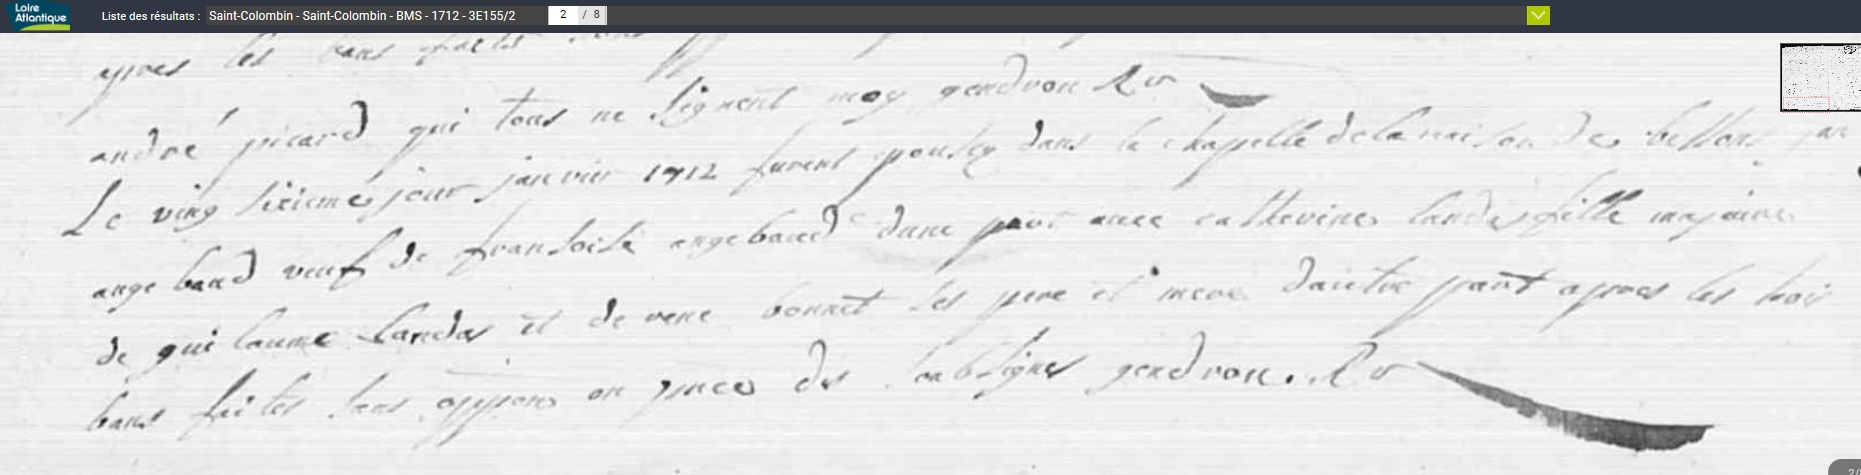 Loire Atlantique
Liste des résultats : Saint-Colombin - Saint-Colombin - BMS - 1712 - 3E155/2 2 / 8
apres les bans faits
andré picard qui tous ne signent moy gendron Rr
Le ving sixieme jour janvier 1712 furent epousez dans la chapelle de la maison de
ange baud veuf de fransoise angebaud dune part avec catherine landas fille majeure
de guilaume Landas et de rene bonnet ses pere et mere dautre part apres les trois
bans faites sans oppon en pnce des soubsignes gendron. Rr